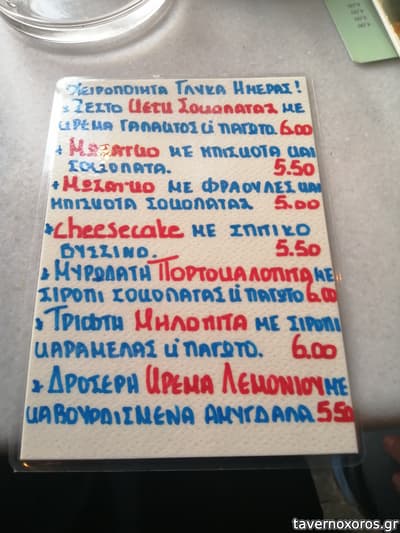 Χειροποιητα Γλυκα Ημερας!
* Ζεστο κεικ Σοκολατας με
κρεμα γαλακτος ή παγωτο. 6.00
* Μωσαικο με μπισκοτα και
σοκολατα. 5.50
* Μωσαικο με φραουλες και
μπισκοτα σοκολατας 5.00
* Cheesecake με σπιτικο
βυσσινο. 5.50
* Μυρωδατη Πορτοκαλοπιτα με
σιροπι σοκολατας ή παγωτο 6.00
* Τριφτη Μηλοπιτα με σιροπι
καραμελας ή παγωτο. 6.00
* Δροσερη Κρεμα Λεμονιου με
καβουρδισμενα αμυγδαλα 5.50
tavernoxoros.gr